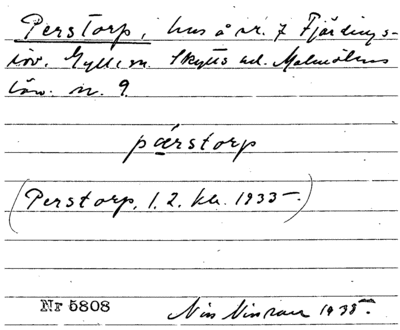 Perstorp, hus å nr. 7 Fjärdings-
löv. Gylle sn. Skytts hd. Malmöhus
län. n. 9.
pærstorp
(Perstorp. 1. 2. kl. 1935.)
Nr 5808
Nils Ninrau 1935.